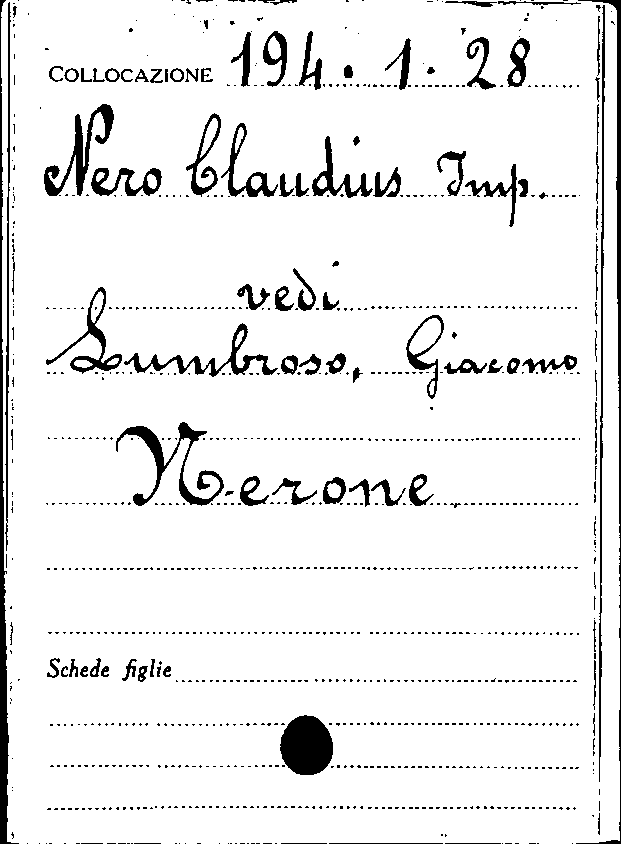 COLLOCAZIONE 194.1.28
Nero Claudius Imp.
vedi
Lumbroso, Giacomo
Nerone
Schede figlie